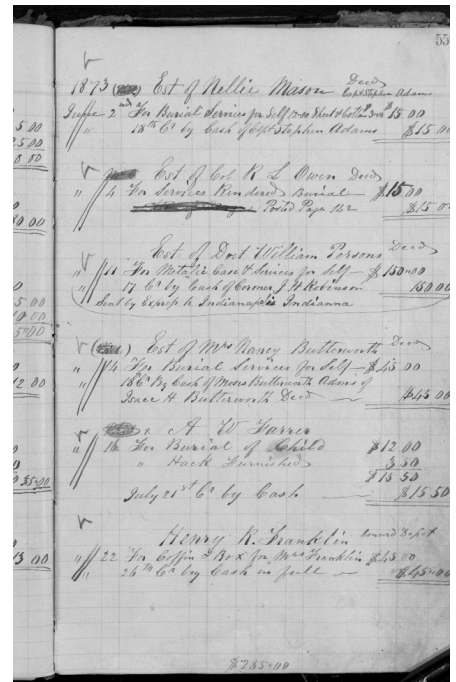 55
1873 Est of Nellie Mason Decd
Capt Stephen Adams
June 2nd For Burial Services for Self 12.00 Shoes & Cotton 3.00 $15 00
" 18th Cr by Cash of Cpt Stephen Adams $15 00
Est of Col R L Owen Decd
" 4 For Services Rendered Burial $15 00
Posted Page 162 $15 00
Est of Doct William Parsons Decd
" 11 For Metalic Case & Services for Self $150.00
" 17 Cr by Cash of Coroner J H Robinson 150 00
Sent by Express to Indianapolis Indianna
Est of Mrs Nancy Butterworth Decd
" 14 For Burial Services for Self $45 00
18 Cr By Cash of Moses Butterworth Adms of
Isaac H Butterworth Decd $45 00
A W Farrer
" 16 For Burial of Child $12 00
" Hack Furnished 3.50
$15 50
July 21st Cr by Cash $15 50
Henry R. Franklin Depot
" 22 For Coffin & Box for Mrs Franklin $45.00
" 26th Cr by Cash in full $45.00
$285-00
5 00
25 00
8 00
80 00
5 00
10 00
5.00
12 00
35.00
13 00